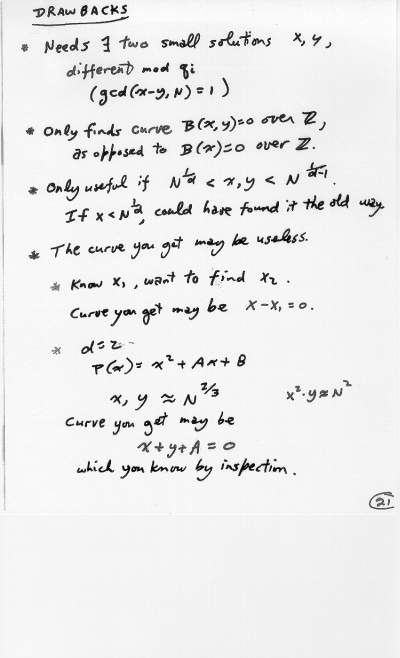 DRAWBACKS
* Needs ∃ two small solutions x, y,
different mod qi
(gcd(x-y, N) = 1)
* Only finds curve B(x,y)=0 over ℤ,
as opposed to B(x)=0 over ℤ.
* Only useful if N^{1/d} < x, y < N^{1/(d-1)}.
If x < N^{1/d}, could have found it the old way.
* The curve you get may be useless.
* Know x₁, want to find x₂.
Curve you get may be x - x₁ = 0.
* d = 2
P(x) = x² + Ax + B
x, y ≈ N^{2/3} x²·y ≈ N²
Curve you get may be
x + y + A = 0
which you know by inspection.
21